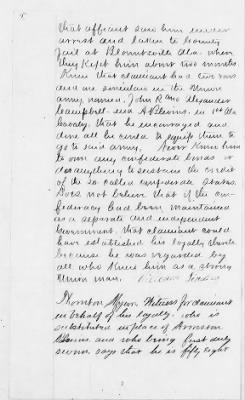 that affiant saw him under
arrest and taken to County
jail at Blountsville Ala. where
they kept him about two months.
Knew that claimant had two sons
and one son in law in the Union
army, named, John R and Alexander
Campbell and
that he encouraged and
done all he could to equip them to
go to said army. Never knew him
to own any confederate bonds or
do anything to sustain the credit
of the so called confederate States.
Does not believe that if the con-
federacy had been maintained
as a separate and independent
Government, that claimant could
have established his loyalty thereto
because he was regarded by
all who knew him as a strong
Union man.
Thornton Witness for claimant
in behalf of his loyalty, who is
substituted in place of
and who being first duly
sworn says that he is fifty eight